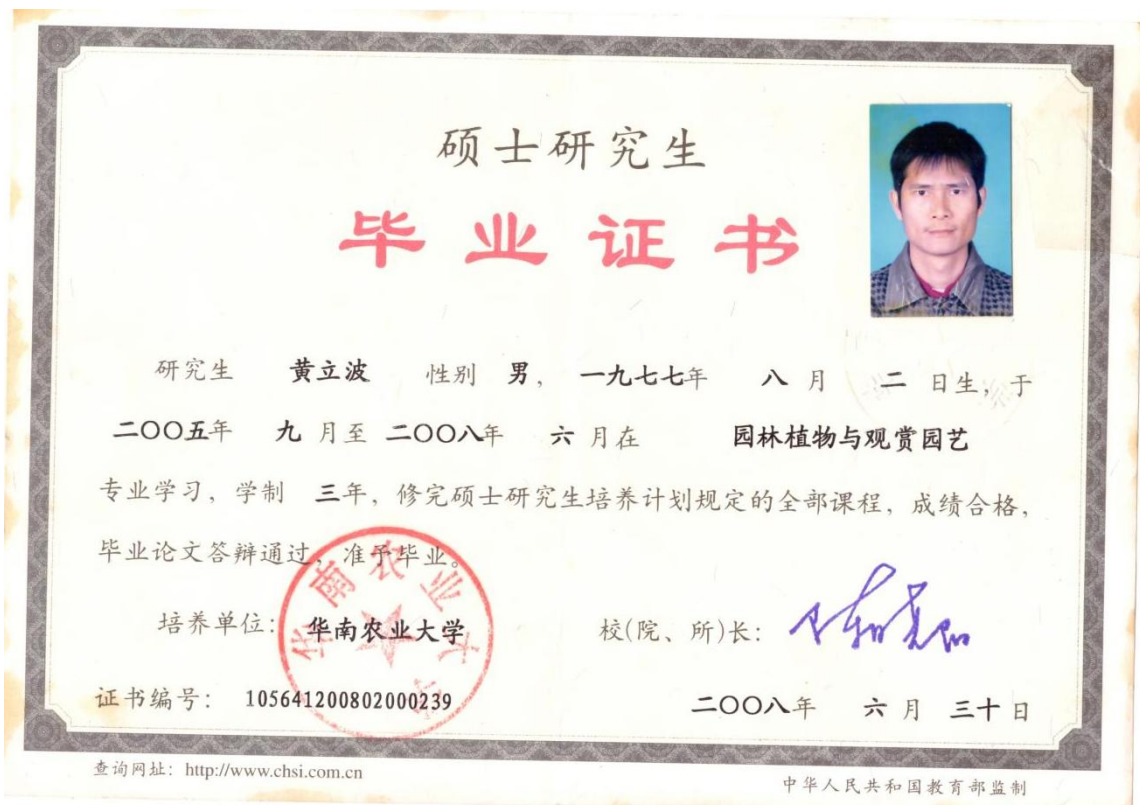 硕士研究生
毕业证书
研究生 黄立波 性别 男， 一九七七年 八 月 二 日生，于
二〇〇五年 九 月至 二〇〇八年 六 月在 园林植物与观赏园艺
专业学习，学制 三年，修完硕士研究生培养计划规定的全部课程，成绩合格，
毕业论文答辩通过，准予毕业。
培养单位： 华南农业大学
校(院、所)长：
华南农业大学
证书编号： 105641200802000239
二〇〇八年 六 月 三十 日
查询网址：http://www.chsi.com.cn
中华人民共和国教育部监制